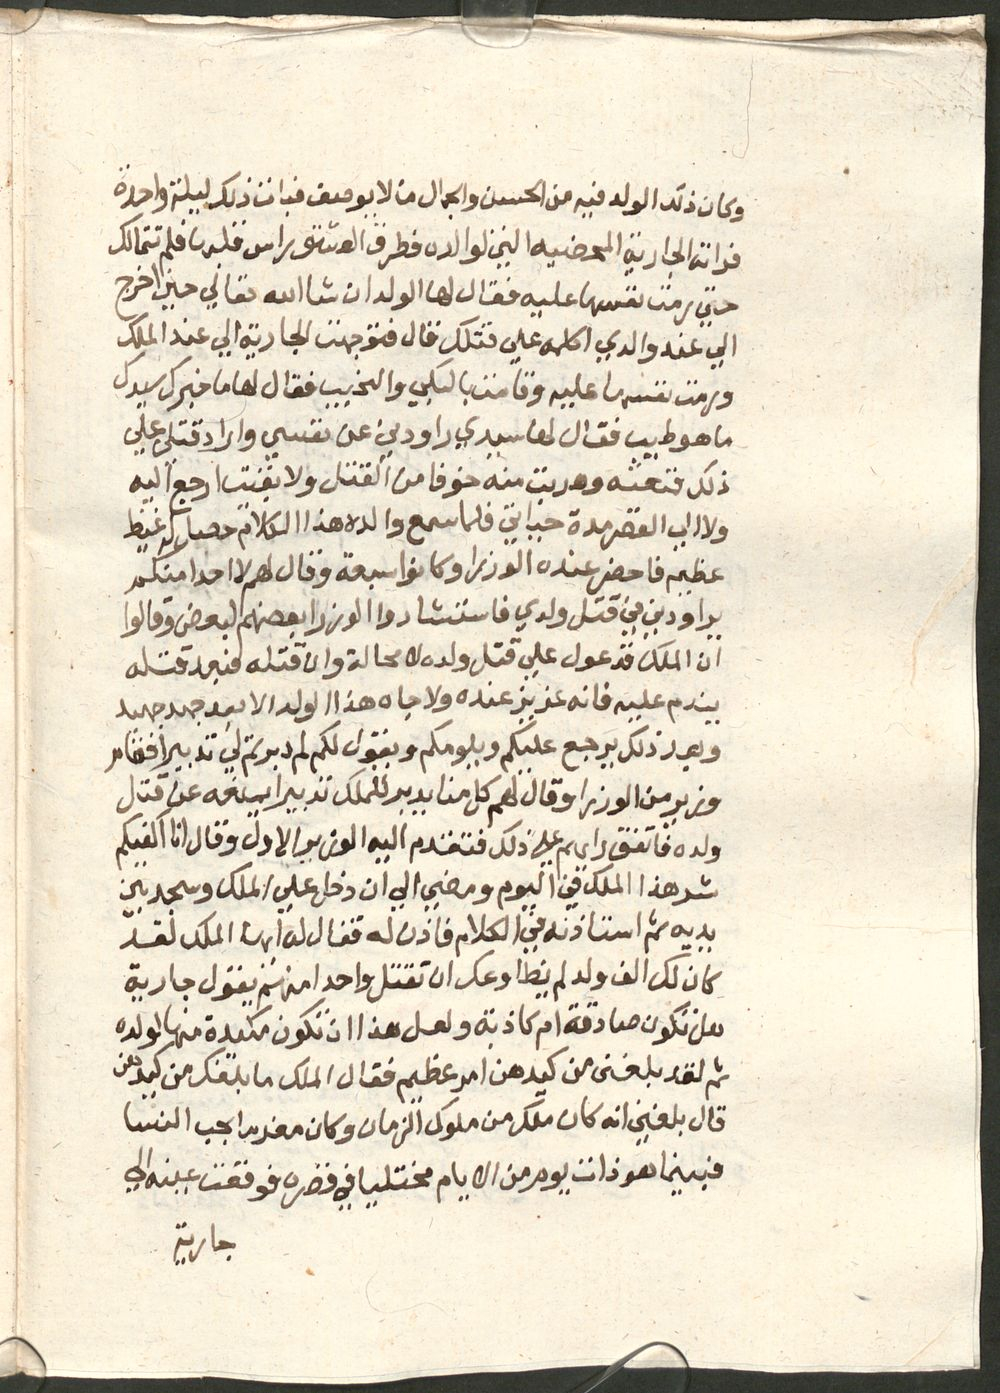 وكان ذلك الولد فيه من الحسن والجمال ما لا يوصف فبات ذلك ليلة واحدة
فراته الجارية المحضيه التي لوالده فطرق العشق براس قلبها فلم تتمالك
حتي رمت نفسها عليه فقال لها الولد ان شا الله تعالي حين اخرج
الي عند والدي اكلمه علي قتلك قال فتوجهت الجارية الي عند الملك
ورمت نفسها عليه وقامت بالبكي والنحيب فقال لها ما خبرك سيدك
ما هو طيب فقال لها سيدي راودني عن نفسي واراد قتلي علي
ذلك فتعته وهربت منه خوفا من القتل ولا بقيت ارجع اليه
ولا الي القصر مدة حياتي فلما سمع والده هذا الكلام حصل له غيظ
عظيم فاحضر عنده الوزرا وكانوا سبعة وقال لهم لا احدا منكم
يراودني في قتل ولدي فاستشاروا الوزرا بعضهم لبعض وقالوا
ان الملك قد عول علي قتل ولده لا محالة وان قتله فبعد قتله
يندم عليه فانه عزيز عنده ولا جاه هذا الولد الا بعد جهد جهيد
وبعد ذلك يرجع عليكم ويلومكم ويقول لكم لم دبرتم لي تدبيرا فقام
وزير من الوزرا وقال لهم كل منا يدبر للملك تدبيرا يمنعه عن قتل
ولده فاتفق رايهم علي ذلك فتقدم اليه الوزير الاول وقال انا اكفيكم
شر هذا الملك في اليوم ومضي الي ان دخل علي الملك وسجد بين
يديه ثم استاذنه في الكلام فاذن له فقال له ايها الملك لقد
كان لك الف ولد لم يطاوعك ان تقتل واحدا منهم بقول جارية
هل تكون صادقة ام كاذبة ولعل هذا ان تكون مكيدة منها لولده
ثم لقد بلغني من كيدهن امر عظيم فقال الملك ما بلغك من كيدهن
قال بلغني انه كان ملك من ملوك الزمان وكان مغرما بحب النسا
فبينما هو ذات يوم من الايام مختليا في قصره فوقعت عينه الي
جارية